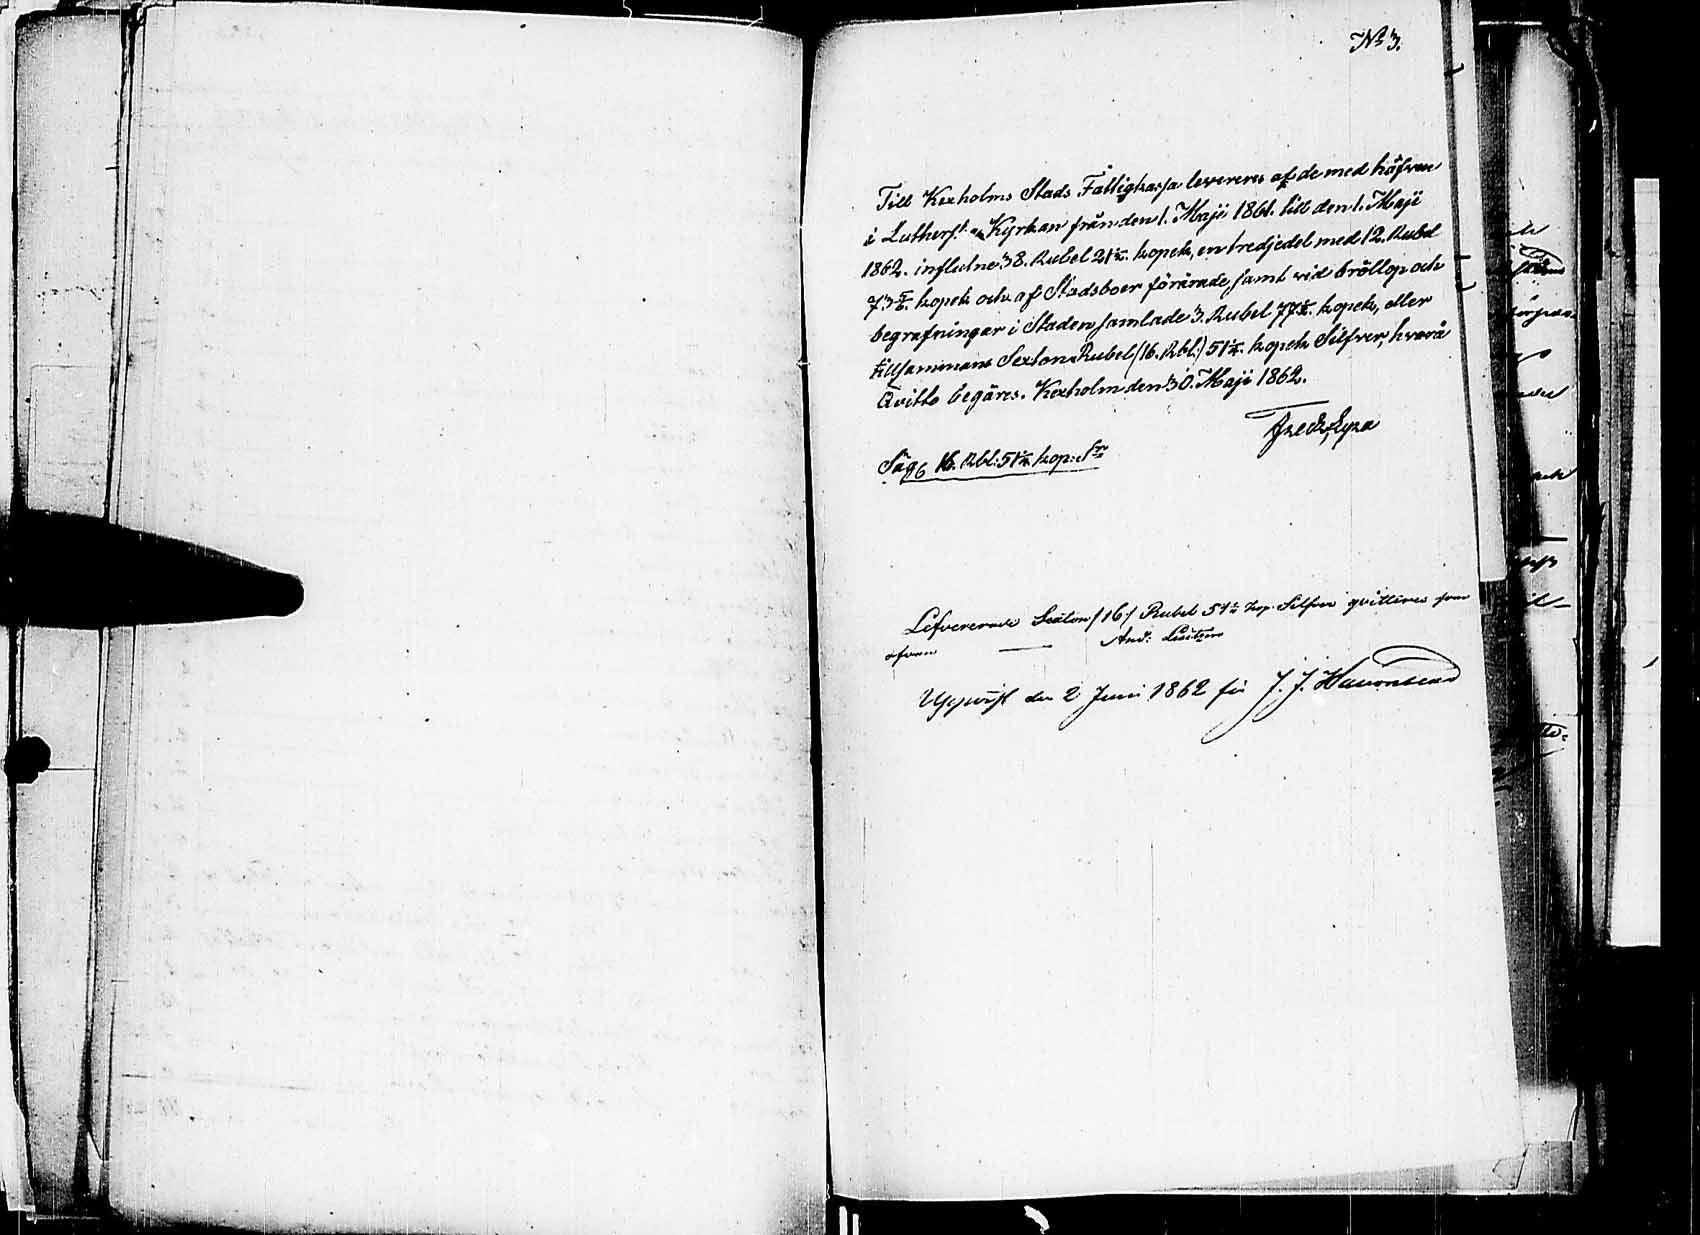 No 3.
Till Kexholms Stads Fattigkassa levereras af de med håfven
i Luthersk. Kyrkan från den 1. Maji 1861. till den 1. Maji
1862. influtne 38. Rubel 21½. kopek, en tredjedel med 12. Rubel
73 kopek och af Stadsboer förärade samt vid bröllop och
begrafningar i Staden samlade 3. Rubel 77½. kopek, eller
tillsammans Sexton Rubel (16. Rbl.) 51¼. kopek Silfver, hvarå
Qvitto begäres. Kexholm den 30. Maji 1862.
Fredr.
Säg 16. Rbl. 51¼ kop. Sr
Lefvererade Sexton /16/ Rubel 51¼ kop. Silfver qvitteres som
ofvan
den 2 Juni 1862 för J. J.